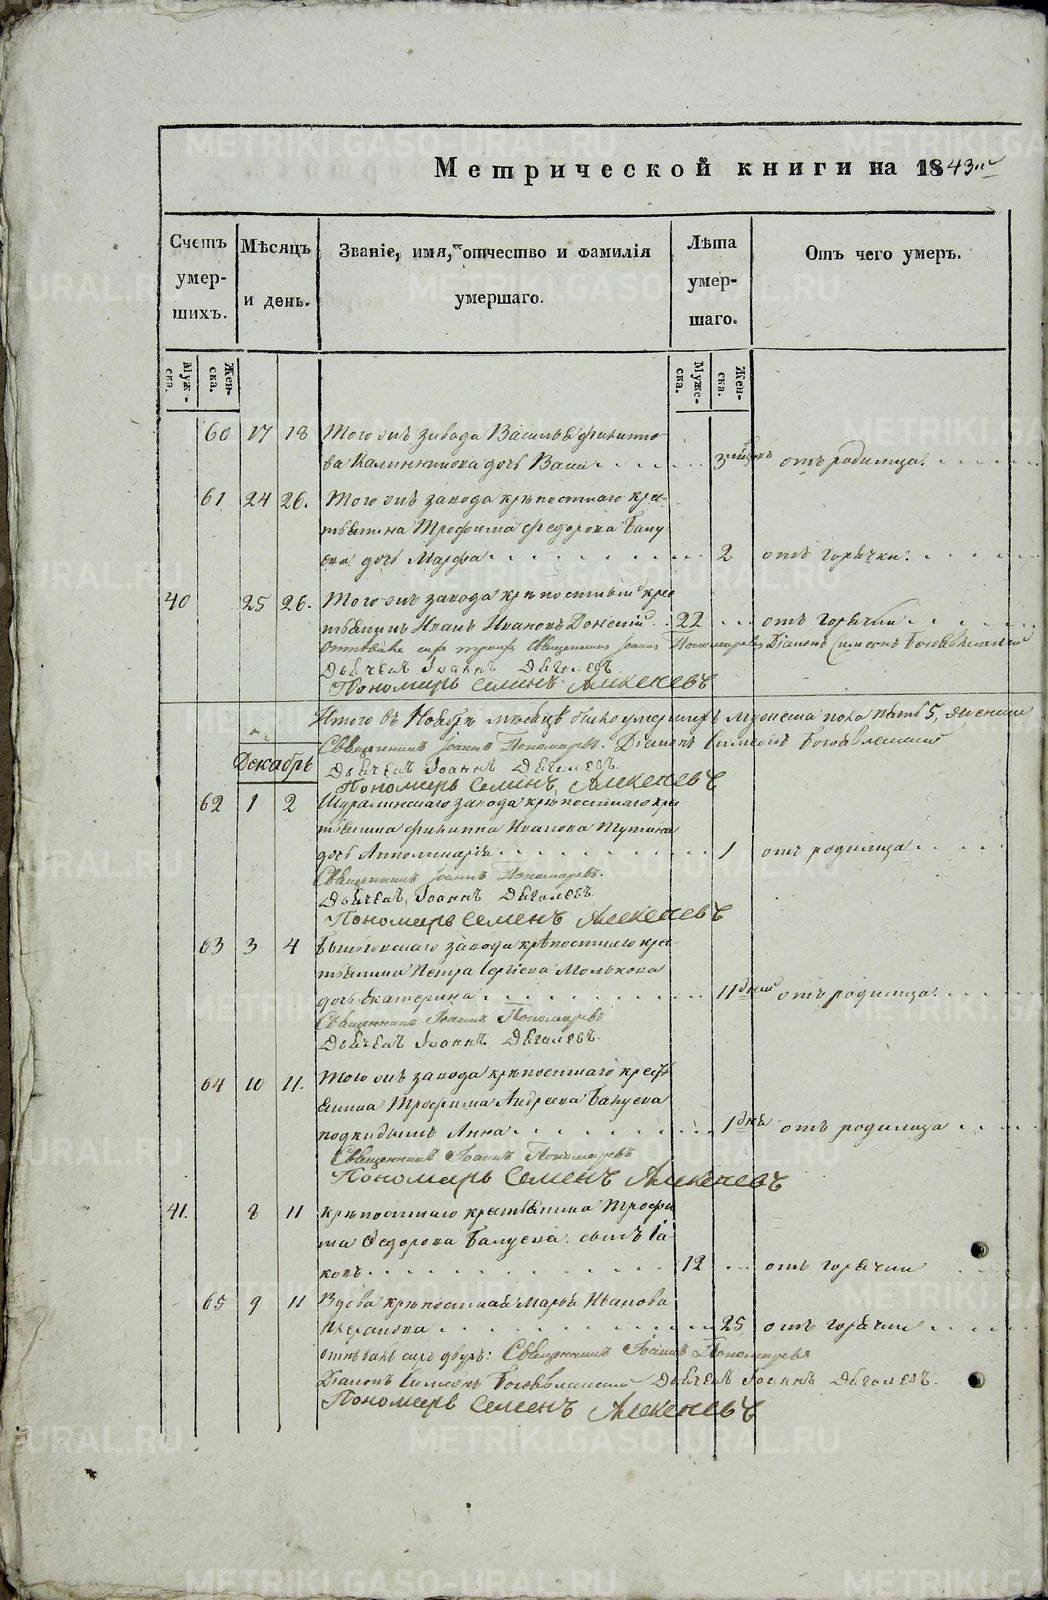 Метрической книги на 1843й
Счетъ умер-шихъ.
Мѣсяцъ и день.
Званіе, имя, отчество и фамилія умершаго.
Лѣта умер-шаго.
Отъ чего умеръ.
Муже-ска.
Жен-ска.
Муже-ска.
Жен-ска.
60 17 18 Того жъ завода Василья Филиппо-
ва Калинникова дочь 3 отъ родимца.
61 24 26. Того жъ завода крѣпостнаго кре-
стьянина Трофима Федорова Балу
ева дочь Марфа 2 отъ горячки.
40 25 26. Того жъ завода крѣпостный кре
стьянинъ Иванъ Ивановъ Донской 22 отъ горячки
Священникъ Іоаннъ Пономаревъ Діаконъ Симеонъ Боговленскій
Дьячекъ Іоаннъ Дягилевъ.
Пономарь Семенъ Алекеневъ
Итого въ Ноябрѣ мѣсяцѣ было умершихъ мужеска пола пять 5, женска
Священникъ Іоаннъ Пономаревъ. Діаконъ Симеонъ Боговленскій
Декабрь
Дьячекъ Іоаннъ Дягилевъ.
Пономарь Семенъ Алекеневъ
62 1 2 Шуралинскаго завода крѣпостнаго кре
стьянина Филиппа Иванова
дочь Апполинарія 1 отъ родимца
Священникъ Іоаннъ Пономаревъ.
Дьячекъ Іоаннъ Дягилевъ.
Пономарь Семенъ Алекеневъ
63 3 4 завода крѣпостнаго кре-
стьянина Петра Сергѣева Молькова
дочь Екатерина 11 дней отъ родимца.
Священникъ Іоаннъ Пономаревъ
Дьячекъ Іоаннъ Дягилевъ.
64 10 11. Того жъ завода крѣпостнаго кресть
янина Трофима Андреева Балуева
подкидышъ Анна 1 дня отъ родимца
Священникъ Іоаннъ Пономаревъ
Пономарь Семенъ Алекеневъ
41. 8 11 крѣпостнаго крестьянина Трофи
ма Федорова Балуева сынъ Іа-
ковъ 12 отъ горячки
65 9 11 Вдова крѣпостная Марья Иванова
25 отъ горячки
Священникъ Іоаннъ Пономаревъ
Діаконъ Симеонъ Боговленскій Дьячекъ Іоаннъ Дягилевъ.
Пономарь Семенъ Алекеневъ
METRIKI.GASO-URAL.RU